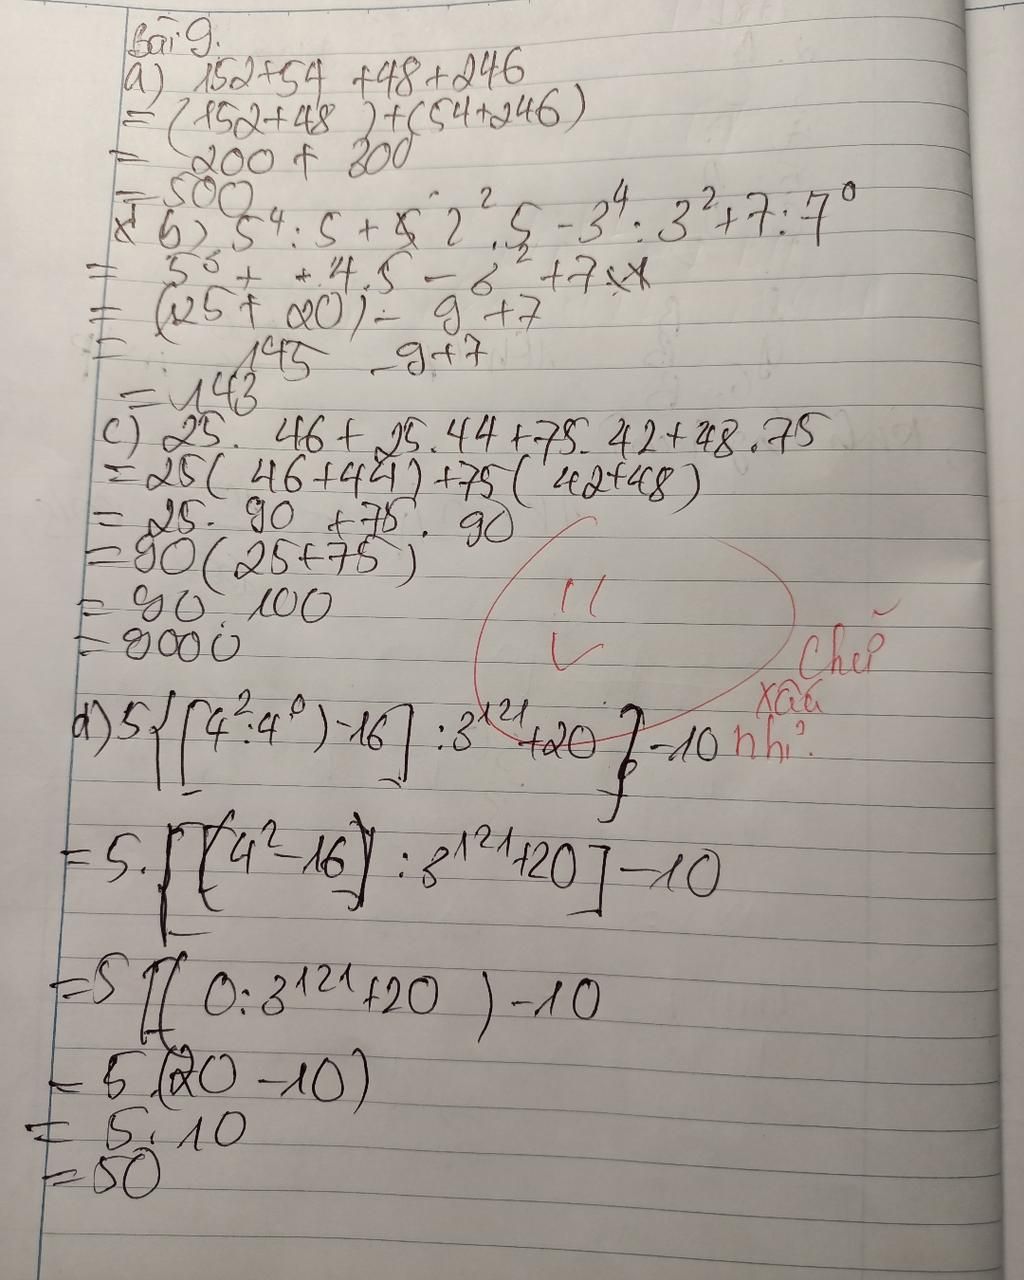 Bài 9.
a) 152+54 +48+246
= (152+48 )+(54+246)
= 200 + 300
= 500
b) 5⁴:5 + 2².5 - 3⁴:3²+7:7⁰
= 5³ + 4.5 - 3² +7
= (125+ 20) - 9 +7
= 145 -9+7
= 143
c) 25. 46+25.44+75.42+48.75
= 25( 46+44) +75( 42+48)
= 25. 90 +75. 90
= 90(25+75)
= 90.100
= 9000
Chữ
xấu
nhỉ?
d) 5{[4²:4⁰)-16] :3¹²¹+20}-10
= 5.[(4²-16) :3¹²¹+20]-10
= 5[( 0:3¹²¹+20 )-10
= 5.(20 -10)
= 5.10
= 50